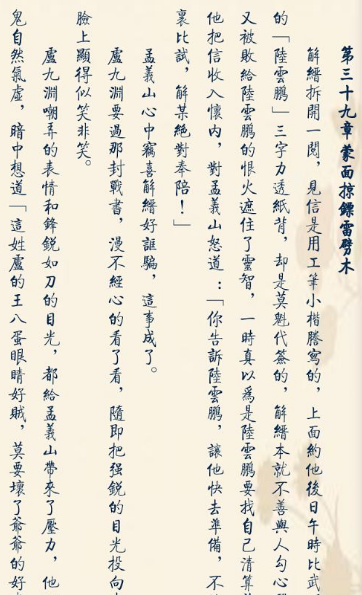 第三十九章蒙面掠鏢雷劈木
解縉拆開一閱，見信是用工筆小楷謄寫的，上面約他後日午時比武，
的「陸雲鵬」三字力透紙背，却是莫魁代簽的，解縉本就不善與人勾心
又被敗給陸雲鵬的恨火遮住了靈智，一時真以爲是陸雲鵬要找自己清算
他把信收入懷内，對孟義山怒道：「你告訴陸雲鵬，讓他快去準備，不
裏比試，解某絶對奉陪！」
孟義山心中竊喜解縉好誆騙，這事成了。
盧九淵要過那封戰書，漫不經心的看了看，隨即把强鋭的目光投向
臉上顯得似笑非笑。
盧九淵嘲弄的表情和鋒鋭如刀的目光，都給孟義山帶來了壓力，他
鬼自然氣虚，暗中想道「這姓盧的王八蛋眼睛好賊，莫要壞了爺爺的好